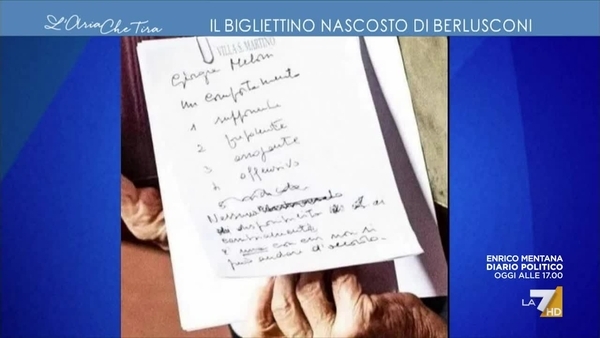 L'Aria Che Tira
IL BIGLIETTINO NASCOSTO DI BERLUSCONI
VILLA S. MARTINO
Giorgia Meloni
Un comportamento
1 supponente
2 prepotente
3 arrogante
4 offensivo
Nessuna
disponibilità ai
cambiamenti
è una con cui non si
può andare d'accordo.
ENRICO MENTANA
DIARIO POLITICO
OGGI ALLE 17.00
LA 7 HD